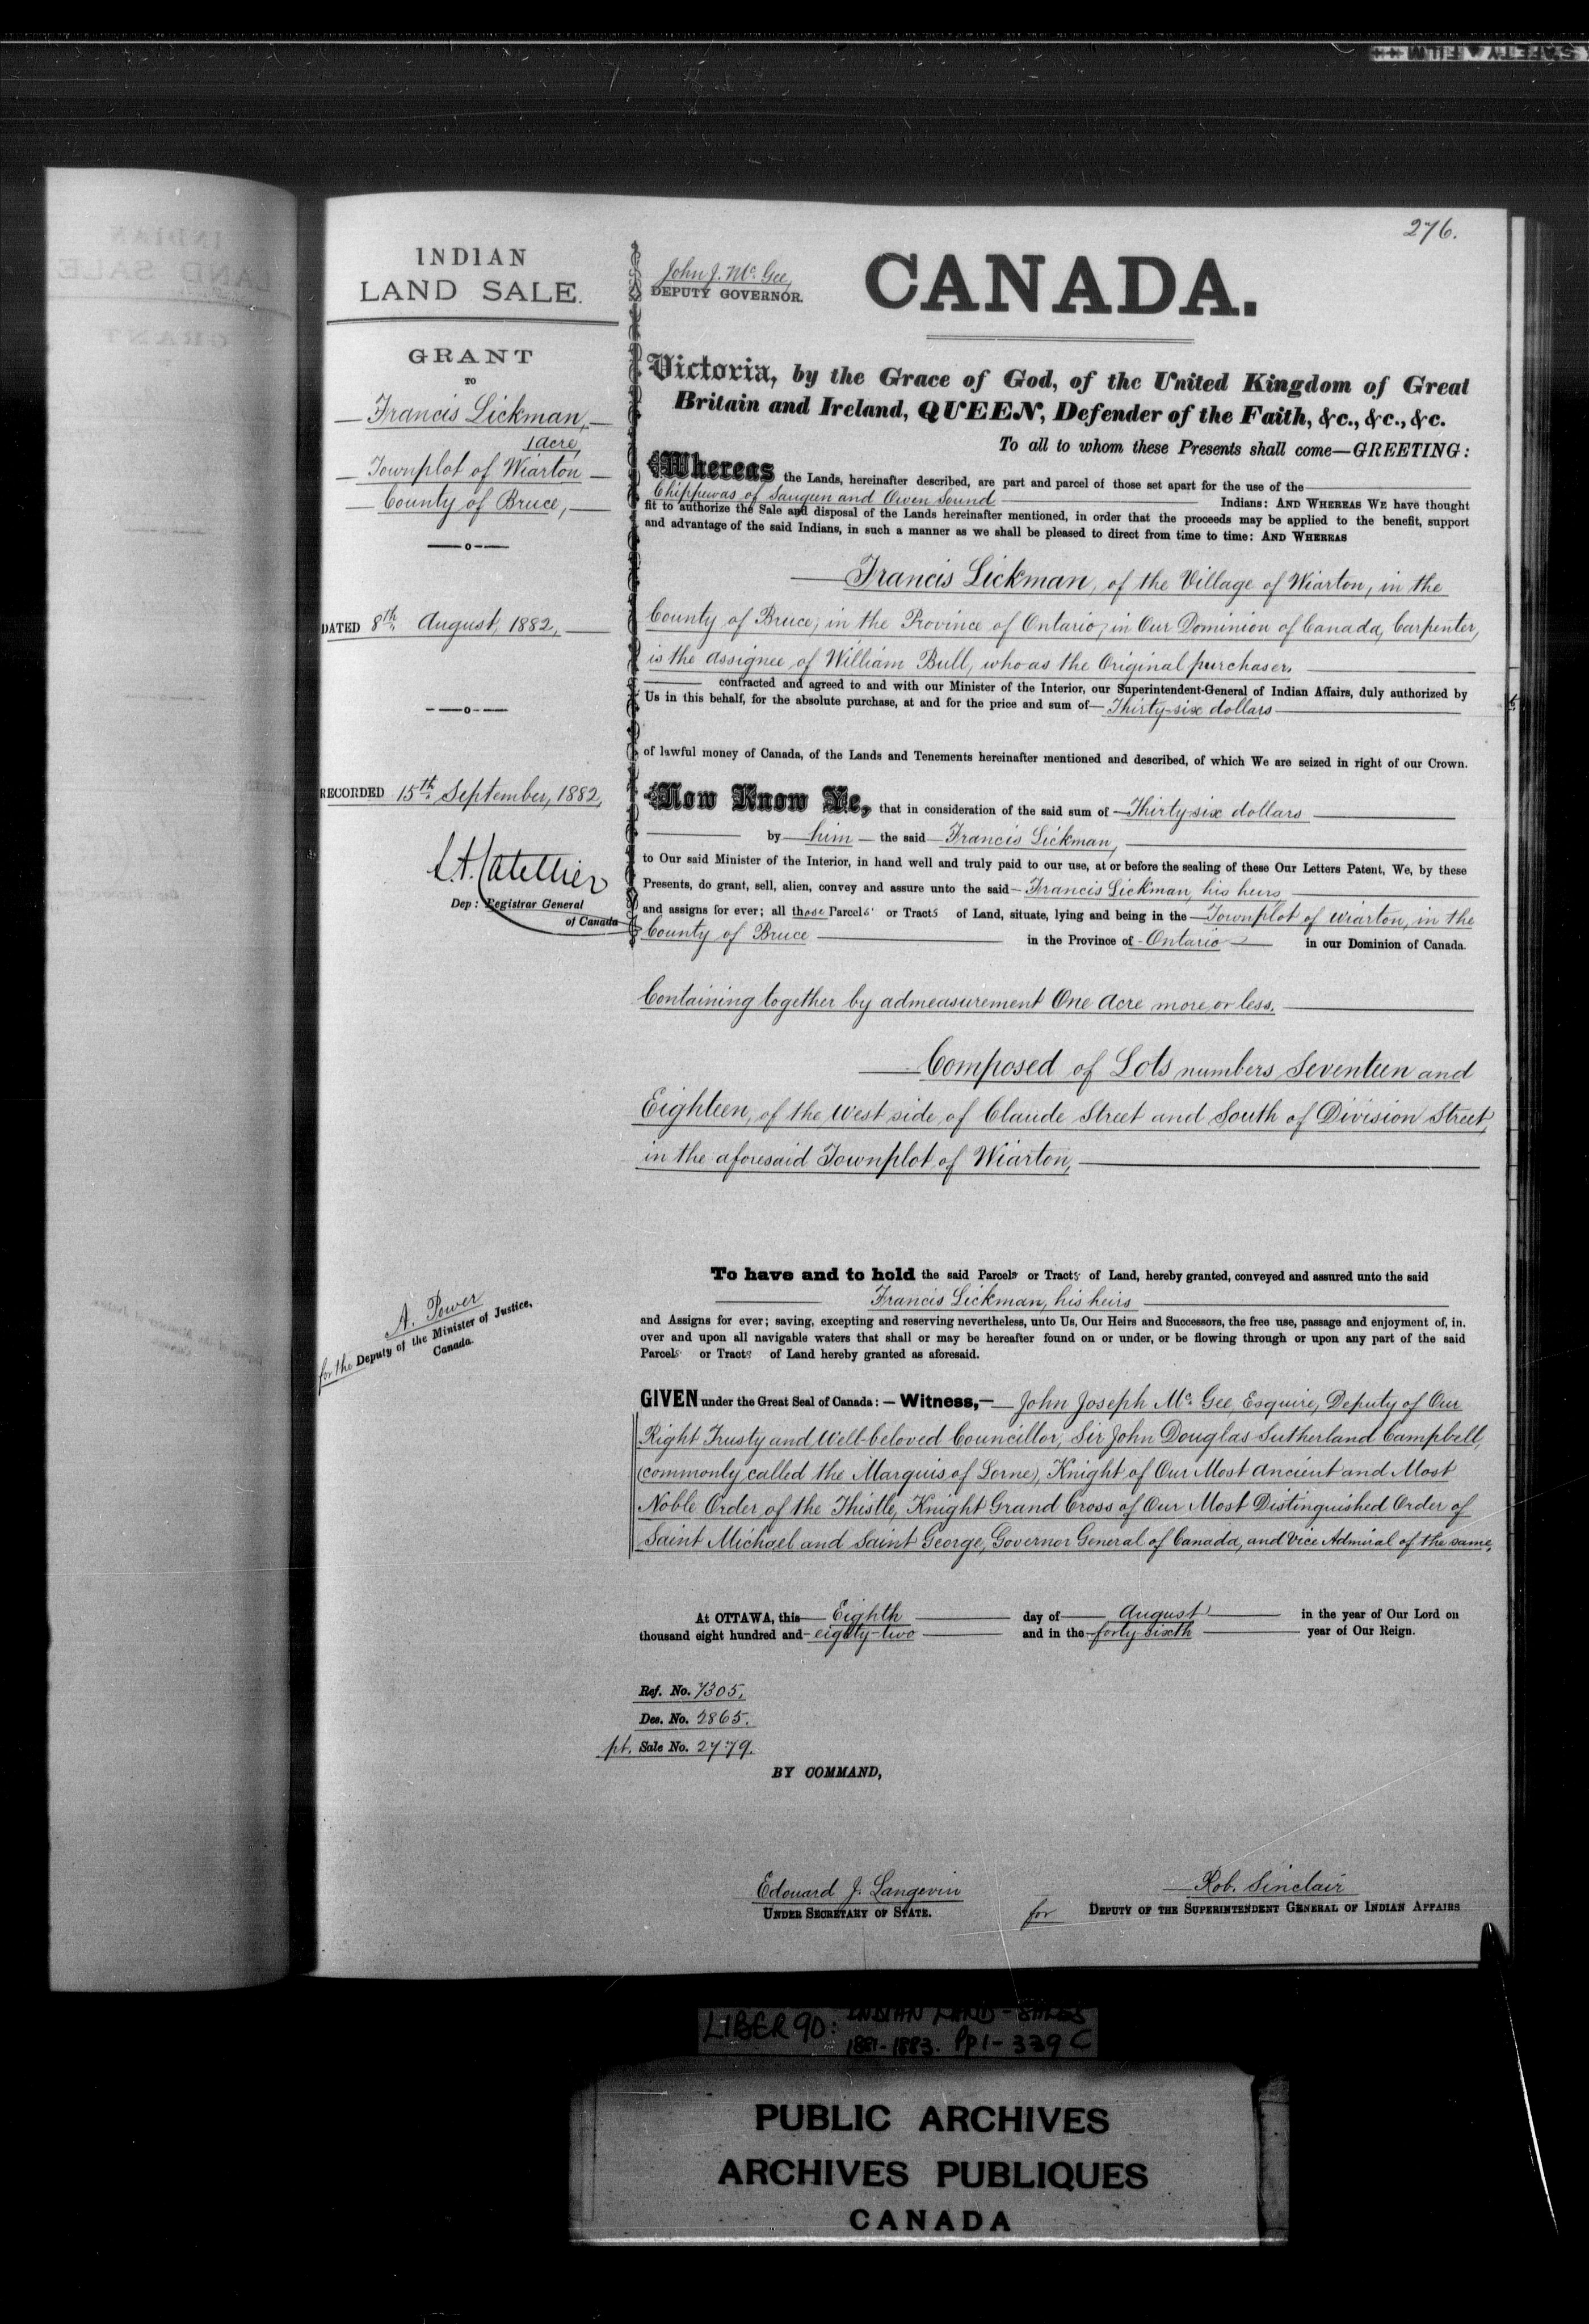 276.
INDIAN
LAND SALE.
GRANT
TO
Francis Lickman,
1 acre,
Townplot of Wiarton
County of Bruce,
DATED 8th August, 1882,
RECORDED 15th September, 1882,
Dep: Registrar General
of Canada
A. Power
for the Deputy of the Minister of Justice,
Canada.
John J. McGee,
DEPUTY GOVERNOR.
CANADA.
Victoria, by the Grace of God, of the United Kingdom of Great
Britain and Ireland, QUEEN, Defender of the Faith, &c., &c., &c.
To all to whom these Presents shall come—GREETING:
Whereas the Lands, hereinafter described, are part and parcel of those set apart for the use of the
Chippewas of Saugeen and Owen Sound Indians: AND WHEREAS WE have thought
fit to authorize the Sale and disposal of the Lands hereinafter mentioned, in order that the proceeds may be applied to the benefit, support
and advantage of the said Indians, in such a manner as we shall be pleased to direct from time to time: AND WHEREAS
Francis Lickman, of the Village of Wiarton, in the
County of Bruce, in the Province of Ontario, in Our Dominion of Canada, Carpenter,
is the Assignee of William Bull, who as the Original purchaser,
contracted and agreed to and with our Minister of the Interior, our Superintendent-General of Indian Affairs, duly authorized by
Us in this behalf, for the absolute purchase, at and for the price and sum of—Thirty-six dollars
of lawful money of Canada, of the Lands and Tenements hereinafter mentioned and described, of which We are seized in right of our Crown.
Now Know Ye, that in consideration of the said sum of—Thirty-six dollars
by—him—the said—Francis Lickman,
to Our said Minister of the Interior, in hand well and truly paid to our use, at or before the sealing of these Our Letters Patent, We, by these
Presents, do grant, sell, alien, convey and assure unto the said—Francis Lickman, his heirs
and assigns for ever; all those Parcels or Tracts of Land, situate, lying and being in the—Townplot of Wiarton, in the
County of Bruce in the Province of—Ontario— in our Dominion of Canada.
Containing together by admeasurement One Acre more or less.
Composed of Lots numbers Seventeen and
Eighteen, of the West side of Claude Street and South of Division Street,
in the aforesaid Townplot of Wiarton,
To have and to hold the said Parcels or Tracts of Land, hereby granted, conveyed and assured unto the said
Francis Lickman, his heirs
and Assigns for ever; saving, excepting and reserving nevertheless, unto Us, Our Heirs and Successors, the free use, passage and enjoyment of, in,
over and upon all navigable waters that shall or may be hereafter found on or under, or be flowing through or upon any part of the said
Parcels or Tracts of Land hereby granted as aforesaid.
GIVEN under the Great Seal of Canada:—Witness,—John Joseph McGee, Esquire, Deputy of Our
Right Trusty and Well-beloved Councillor, Sir John Douglas Sutherland Campbell,
(commonly called the Marquis of Lorne), Knight of Our Most Ancient and Most
Noble Order of the Thistle, Knight Grand Cross of Our Most Distinguished Order of
Saint Michael and Saint George, Governor General of Canada, and Vice Admiral of the same,
At OTTAWA, this—Eighth day of—August in the year of Our Lord on
thousand eight hundred and—eighty-two and in the—forty-sixth year of Our Reign.
Ref. No. 7305,
Des. No. 2865.
pt. Sale No. 2779.
BY COMMAND,
Edouard J. Langevin
UNDER SECRETARY OF STATE.
Rob. Sinclair
for DEPUTY OF THE SUPERINTENDENT GENERAL OF INDIAN AFFAIRS
LIBER 90: INDIAN LAND-SALES
1881-1883. Pp 1-339 C
PUBLIC ARCHIVES
ARCHIVES PUBLIQUES
CANADA